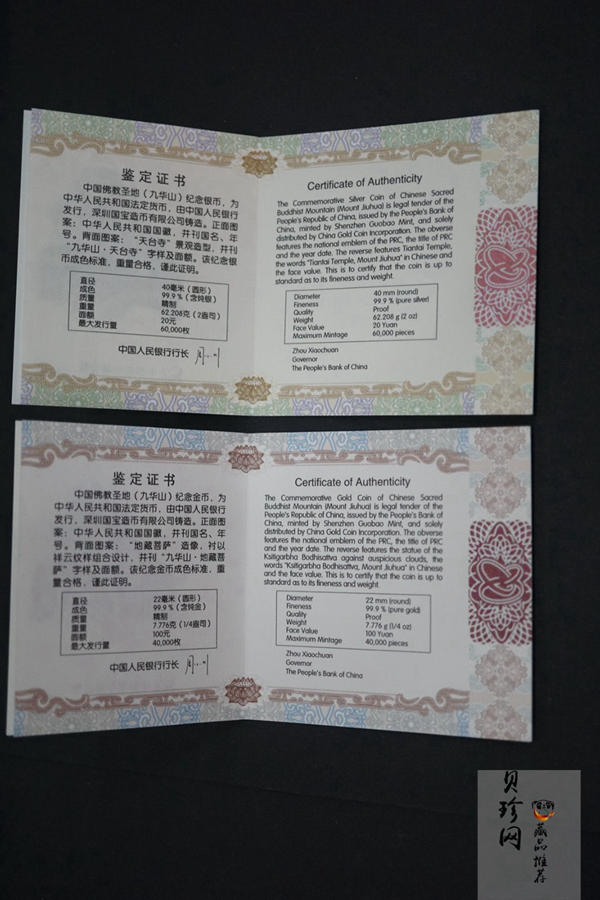 鉴定证书
中国佛教圣地（九华山）纪念银币，为
中华人民共和国法定货币，由中国人民银行
发行，深圳国宝造币有限公司铸造。正面图
案：中华人民共和国国徽，并刊国名、年
号。背面图案：“天台寺”景观造型，并刊
“九华山·天台寺”字样及面额。该纪念银
币成色标准，重量合格，谨此证明。
直径 40毫米（圆形）
成色 99.9％（含纯银）
质量 精制
重量 62.208克（2盎司）
面额 20元
最大发行量 60,000枚
中国人民银行行长
Certificate of Authenticity
The Commemorative Silver Coin of Chinese Sacred
Buddhist Mountain (Mount Jiuhua) is legal tender of the
People's Republic of China, issued by the People's Bank of
China, minted by Shenzhen Guobao Mint, and solely
distributed by China Gold Coin Incorporation. The obverse
features the national emblem of the PRC, the title of PRC
and the year date. The reverse features Tiantai Temple,
the words "Tiantai Temple, Mount Jiuhua" in Chinese and
the face value. This is to certify that the coin is up to
standard as to its fineness and weight.
Diameter 40 mm (round)
Fineness 99.9 % (pure silver)
Quality Proof
Weight 62.208 g (2 oz)
Face Value 20 Yuan
Maximum Mintage 60,000 pieces
Zhou Xiaochuan
Governor
The People's Bank of China
鉴定证书
中国佛教圣地（九华山）纪念金币，为
中华人民共和国法定货币，由中国人民银行
发行，深圳国宝造币有限公司铸造。正面图
案：中华人民共和国国徽，并刊国名、年
号。背面图案：“地藏菩萨”造像，衬以
祥云纹样组合设计，并刊“九华山·地藏菩
萨”字样及面额。该纪念金币成色标准，重
量合格，谨此证明。
直径 22毫米（圆形）
成色 99.9％（含纯金）
质量 精制
重量 7.776克（1/4盎司）
面额 100元
最大发行量 40,000枚
中国人民银行行长
Certificate of Authenticity
The Commemorative Gold Coin of Chinese Sacred
Buddhist Mountain (Mount Jiuhua) is legal tender of the
People's Republic of China, issued by the People's Bank of
China, minted by Shenzhen Guobao Mint, and solely
distributed by China Gold Coin Incorporation. The obverse
features the national emblem of the PRC, the title of PRC
and the year date. The reverse features the statue of the
Ksitigarbha Bodhisattva against auspicious clouds, the
words "Ksitigarbha Bodhisattva, Mount Jiuhua" in Chinese
and the face value. This is to certify that the coin is up to
standard as to its fineness and weight.
Diameter 22 mm (round)
Fineness 99.9 % (pure gold)
Quality Proof
Weight 7.776 g (1/4 oz)
Face Value 100 Yuan
Maximum Mintage 40,000 pieces
Zhou Xiaochuan
Governor
The People's Bank of China
贝珍网
藏品推荐